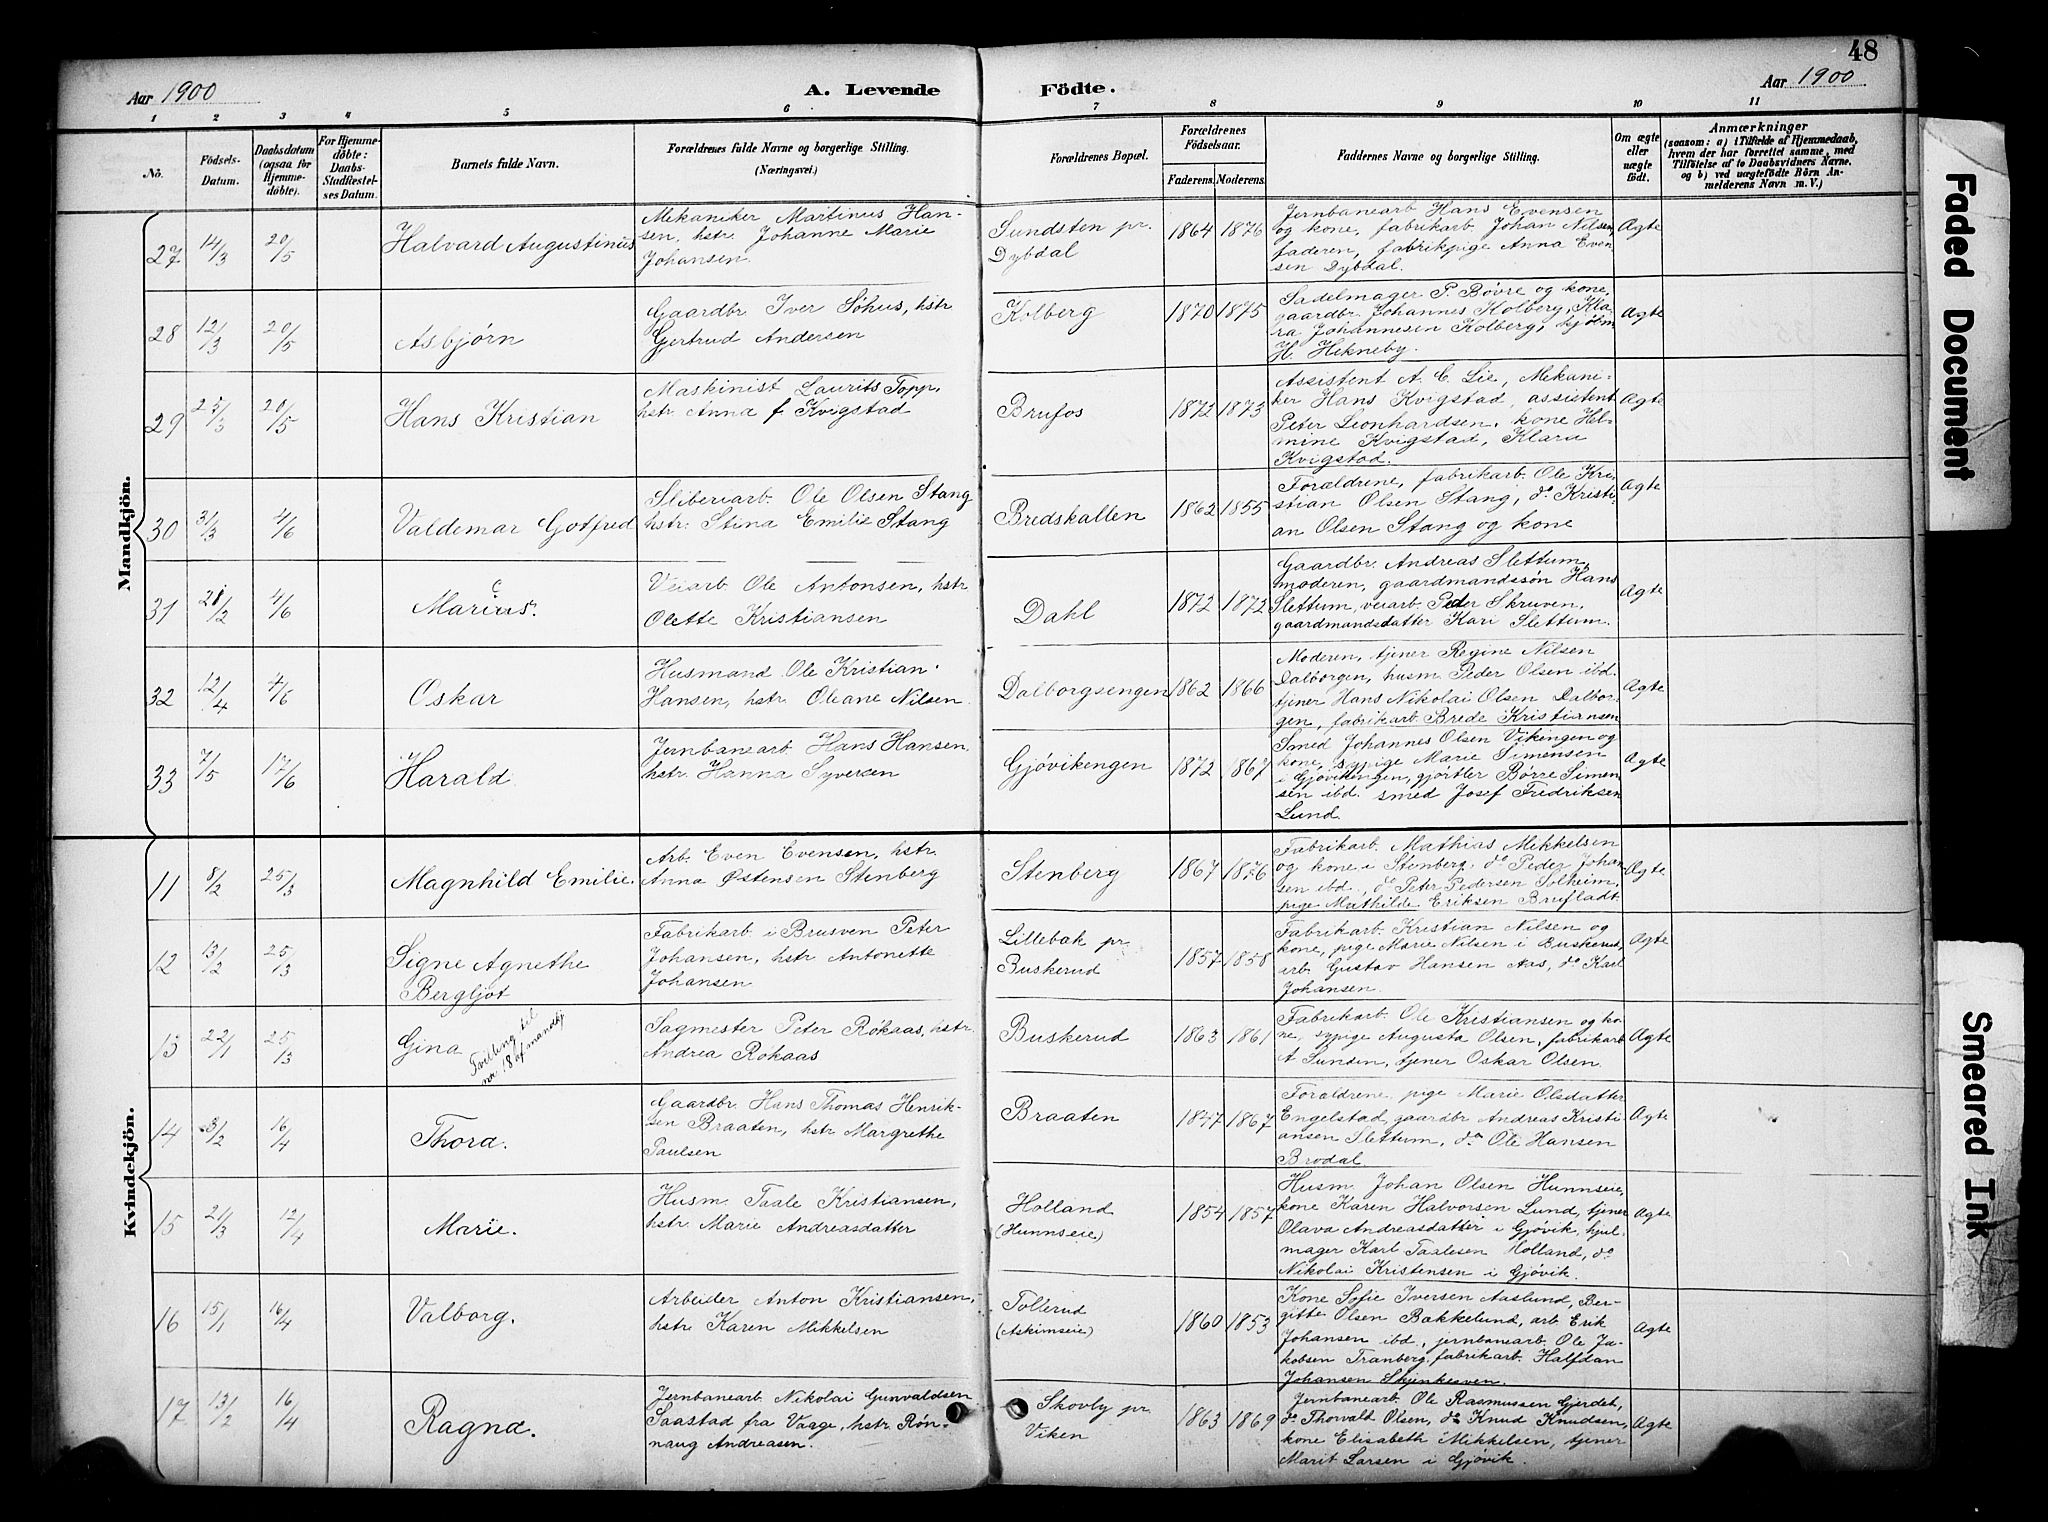 48
Aar 1900
A. Levende
Födte.
Aar 1900
1 2 3 4 5 6 7 8 9 10 11
No.
Födsels-
Datum.
Daabsdatum
(ogsaa for
Hjemme-
döbte).
For Hjemme-
döbte:
Daabs-
Stadfæstel-
ses Datum.
Barnets fulde Navn.
Forældrenes fulde Navne og borgerlige Stilling.
(Næringsvei.)
Forældrenes Bopæl.
Forældrenes
Födselsaar.
Faderens. Moderens.
Faddernes Navne og borgerlige Stilling.
Om ægte
eller
uægte
födt.
Anmærkninger
(saasom: a) i Tilfælde af Hjemmedaab,
hvem der har forrettet samme, med
Tilföielse af to Daabsvidners Navne.
og b) ved uægtefödte Börn An-
melderens Navn m. V.)
Mandkjön.
27 14/3 20/5
Halvard Augustinus
Mekaniker Martinus Han-
sen, hstr. Johanne Marie
Johansen.
Sundsten pr.
Dybdal
1864 1876
Jernbanearb. Hans Evensen
og kone, fabrikarb. Johan Nilsen,
faderen, fabrikpige Anna Even
sen Dybdal.
Ægte
28 12/3 20/5
Asbjørn
Gaardbr. Iver Søhus, hstr
Gertrud Andersen
Kolberg
1870 1875
Sadelmager P. Bøvre og kone,
gaardbr. Johannes Kolberg, Kla-
ra Johannesen Kolberg, hjølm
H. Hekneby.
Ægte
29 25/3 20/5
Hans Kristian
Maskinist Laurits Topp,
hstr. Anna f Kvigstad
Brufos
1872 1873
Assistent A. C. Lie, Mekani-
ker Hans Kvigstad, assistent
Peter Leonhardsen, kone Hel-
mine Kvigstad, Klara
Kvigstad.
Ægte
30 31/3 4/6
Valdemar Gotfred
Sliberiarb. Ole Olsen Stang
hstr. Stina Emilie Stang
Bredskallen
1862 1855
Forældrene, fabrikarb. Ole Kri-
stian Olsen Stang, do Kristi-
an Olsen Stang og kone
Ægte
31 28/2 4/6
Marius.
Veiarb. Ole Antonsen, hstr
Olette Kristiansen
Dahl
1872 1872
Gaardbr. Andreas Slettum,
moderen, gaardmandssøn Hans
Slettum, veiarb. Peder Skruven,
gaardmandsdatter Kari Slettum.
Ægte
32 12/4 4/6
Oskar
Husmand Ole Kristian
Hansen, hstr. Oleane Nilsen
Dalborgsengen
1862 1866
Moderen, tjener Regine Nilsen
Dalborgen, husm. Peder Olsen ibd.
tjener Hans Nikolai Olsen Dalbor-
gen, fabrikarb. Brede Kristiansen
Ægte
33 7/5 17/6
Harald
Jernbanearb. Hans Hansen,
hstr. Hanna Syversen
Gjøvikengen
1872 1867
Smed Johannes Olsen Vikingen og
kone, sypige Marie Simensen
i Gjøvikengen, gjørtler Børre Simen
sen ibd. smed Josef Fredriksen
Lund.
Ægte
Kvindekjön.
11 8/2 25/3
Magnhild Emilie.
Arb. Even Evensen, hstr.
Anna Østensen Stenberg
Stenberg
1867 1876
Fabrikarb. Mathias Mikkelsen
og kone i Stenberg, do Peder Johan
sen ibd., do Peter Pedersen Solheim,
pige Mathilde Eriksen Brufladt.
Ægte
12 13/2 25/3
Signe Agnethe
Bergljot
Fabrikarb. i Brusven Peter
Johansen, hstr Antonette
Johansen
Lillebak pr.
Buskerud
1857 1858
Fabrikarb. Kristian Nilsen og
kone, pige Marie Nilsen i Buskerud,
arb. Gustav Hansen Aas, do Karl
Johansen.
Ægte
13 22/1 25/3
Gina
Tvilling til
nr. 18 af mandkj
Sagmester Peter Røkaas, hstr.
Andrea Røkaas
Buskerud
1863 1861
Fabrikarb. Ole Kristiansen og ko-
ne, sypige Augusta Olsen, fabrikarb
A Lunden, tjener Oskar Olsen.
Ægte
14 3/2 16/4
Thora.
Gaardbr. Hans Thomas Henrik-
sen Braaten, hstr. Margrethe
Paulsen
Braaten
1867
Forældrene, pige Marie Olsdatter
Engelstad, gaardbr Andreas Kristi
ansen Slettum, do Ole Hansen
Brodal
Ægte
15 21/3 12/4
Marie.
Husm. Taale Kristiansen,
hstr. Marie Andreasdatter
Holland
(Hunnseie)
1854 1857
Husm. Johan Olsen Hunnseie,
kone Karen Halvorsen Lund, tjener
Olava Andreasdatter i Gjøvik, hjul-
mager Karl Taalesen Holland, do
Nikolai Kristensen i Gjøvik.
Ægte
16 15/1 16/4
Valborg.
Arbeider Anton Kristiansen,
hstr. Karen Mikkelsen
Tollerud
(Askimseie)
1860 1853
Kone Sofie Iversen Aaslund, Ber-
gitte Olsen Bakkelund, arb Erik
Johansen ibd., jernbanearb. Ole Ja-
kobsen Tranberg, fabrikarb. Halfdan
Johansen Skjinkesven.
Ægte
17 13/2 16/4
Ragna.
Jernbanearb Nikolai Gunvaldsen
Saastad fra Vaage, hstr. Røn-
naug Andreasen.
Skovly pr.
Viken
1863 1869
Jernbanearb. Ole Rasmussen Gjerdet,
do Thorvald Olsen, do Knud Knudsen,
kone Elisabeth Mikkelsen, tjener
Marit Larsen i Gjøvik.
Ægte
Faded Document
Smeared Ink